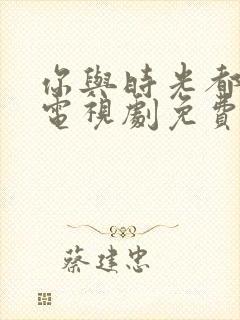 你與時光都
電視劇免費
蔡建忠